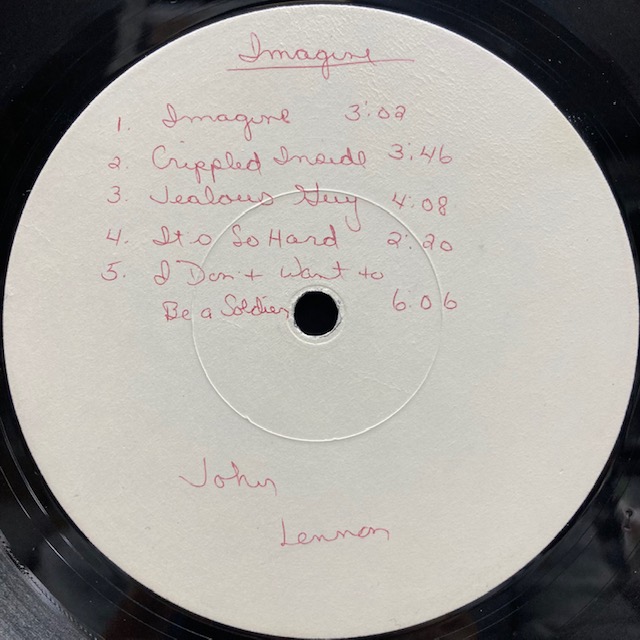 Imagine
1. Imagine 3:02
2. Crippled Inside 3:46
3. Jealous Guy 4:08
4. It's So Hard 2:20
5. I Don't Want to
Be a Soldier 6:06
John
Lennon